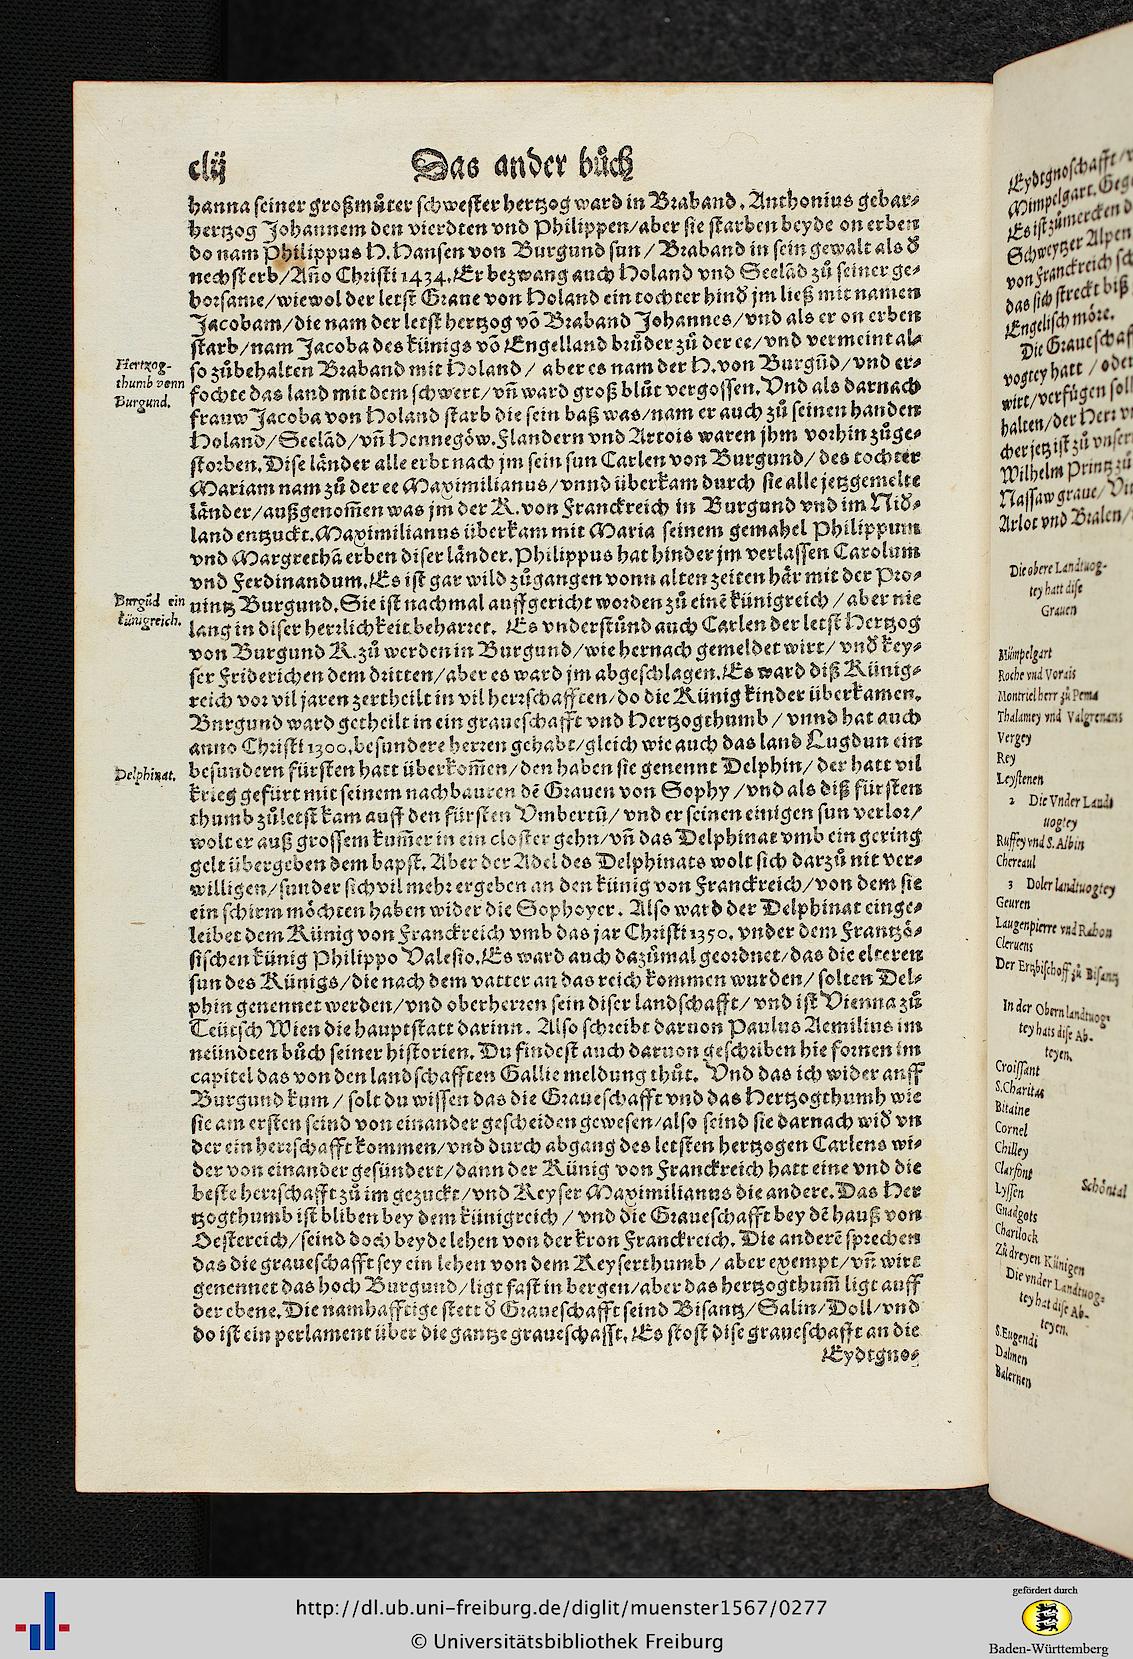 clij
Das ander bůch
hanna seiner großmůter schwester hertzog ward in Braband. Anthonius gebar-
hertzog Johannem den vierdten vnd Philippen/aber sie starben beyde on erben
do nam Philippus H. Hansen von Burgund sun / Braband in sein gewalt als ð
nechst erb/Año Christi 1434. Er bezwang auch Holand vnd Seelãd zů seiner ge-
horsame/wiewol der letst Graue von Holand ein tochter hinð jm ließ mit namen
Jacobam/die nam der letst hertzog võ Braband Johannes/vnd als er on erben
starb/nam Jacoba des künigs võ Engelland brůder zů der ee/vnd vermeint al-
so zůbehalten Braband mit Holand / aber es nam der H. von Burgũd/vnd er-
fochte das land mit dem schwert/vñ ward groß blůt vergossen. Vnd als darnach
frauw Jacoba von Holand starb die sein baß was/nam er auch zů seinen handen
Holand/Seelãd/vñ Hennegöw. Flandern vnd Artois waren jhm vorhin zůge-
storben. Dise länder alle erbt nach jm sein sun Carlen von Burgund/ des tochter
Mariam nam zů der ee Maximilianus/vnnd überkam durch sie alle jetzgemelte
länder/außgenom̃en was jm der K. von Franckreich in Burgund vnd im Nið-
land entzuckt. Maximilianus überkam mit Maria seinem gemahel Philippum
vnd Margrethã erben diser länder. Philippus hat hinder jm verlassen Carolum
vnd Ferdinandum. Es ist gar wild zůgangen vonn alten zeiten här mit der Pro-
uintz Burgund. Sie ist nachmal auffgericht worden zů einẽ künigreich / aber nie
lang in diser herrlichkeit beharret. Es vnderstůnd auch Carlen der letst Hertzog
von Burgund K. zů werden in Burgund/wie hernach gemeldet wirt/ vnð key-
ser Friderichen dem dritten/aber es ward jm abgeschlagen. Es ward diß Künig-
reich vor vil jaren zertheilt in vil herrschafften/do die Künig kinder überkamen.
Bnrgund ward getheilt in ein graueschafft vnd Hertzogthumb / vnnd hat auch
anno Christi 1300. besundere herren gehabt/gleich wie auch das land Lugdun ein
besundern fürsten hatt überkom̃en/den haben sie genennt Delphin/ der hatt vil
krieg gefürt mit seinem nachbauren dẽ Grauen von Sophy /vnd als diß fürsten
thumb zůletst kam auff den fürsten Vmbertũ/ vnd er seinen einigen sun verlor/
wolt er auß grossem kum̃er in ein closter gehn/vñ das Delphinat vmb ein gering
gelt übergeben dem bapst. Aber der Adel des Delphinats wolt sich darzů nit ver-
willigen/sunder sich vil mehr ergeben an den künig von Franckreich/von dem sie
ein schirm möchten haben wider die Sophoyer. Also ward der Delphinat einge-
leibet dem Künig von Franckreich vmb das jar Christi 1350. vnder dem Frantzö-
sischen künig Philippo Valesio. Es ward auch dazůmal geordnet/das die elteren
sun des Künigs/die nach dem vatter an das reich kommen wurden/ solten Del-
phin genennet werden/vnd oberherren sein diser landschafft/ vnd ist Vienna zů
Teütsch Wien die hauptstatt darinn. Also schreibt daruon Paulus Aemilius im
neündten bůch seiner historien. Du findest auch daruon geschriben hie fornen im
capitel das von den landschafften Gallie meldung thůt. Vnd das ich wider auff
Burgund kum / solt du wissen das die Graueschafft vnd das Hertzogthumb wie
sie am ersten seind von einander gescheiden gewesen/also seind sie darnach wið vn
der ein herrschafft kommen/vnd durch abgang des letsten hertzogen Carlens wi-
der von einander gesündert/dann der Künig von Franckreich hatt eine vnd die
beste herrschafft zů im gezuckt/vnd Keyser Maximilianus die andere. Das Her
tzogthumb ist bliben bey dem künigreich / vnd die Graueschafft bey dẽ hauß von
Oestereich/seind doch beyde lehen von der kron Franckreich. Die anderẽ sprechen
das die graueschafft sey ein lehen von dem Keyserthumb / aber exempt/vñ wirt
genennet das hoch Burgund/ligt fast in bergen/aber das hertzogthum̃ ligt auff
der ebene. Die namhafftige stett ð Graueschafft seind Bisantz/Salin/Doll/vnd
do ist ein perlament über die gantze graueschafft. Es stost dise graueschafft an die
Eydtgno-
Hertzog-
thumb vonn
Burgund.
Burgũd ein
künigreich.
Delphinat.
Eydtgnoschafft/
Mimpelgart.
Es ist zůmercken
Schweytzer Alpen
von Franckreich
das sich streckt biß
Engelisch möre.
Die
vogtey hatt / oder
wirt/verfügen
halten/der Herr
cher jetz ist zů
Wilhelm Printz zů
Nassaw graue/
Arlot vnd Bralen/
Die obere Landtuog-
tey hatt dise
Grauen
Mümpelgart
Roche vnd Vorais
Montriel herr zů Pema
Thalamey vnd Valgrenans
Vergey
Rey
Leystenen
2 Die Vnder Landt
uogtey
Ruffey vnd S. Albin
Chereaul
3 Doler landtuogtey
Geuren
Laugenpierre vnd Rahon
Cleruens
Der Ertzbischoff zů Bisantz
In der Obern landtuog-
tey hats dise Ab-
teyen.
Croissant
S. Charitas
Bitaine
Cornel
Chilley
Clarfont
Lyssen
Schöntal
Gnadgots
Charilock
Zů dreyen Künigen
Die vnder Landtuog-
tey hat dise Ab-
teyen.
S. Eugendi
Dalmen
Balernen
http://dl.ub.uni-freiburg.de/diglit/muenster1567/0277
© Universitätsbibliothek Freiburg
gefördert durch
Baden-Württemberg